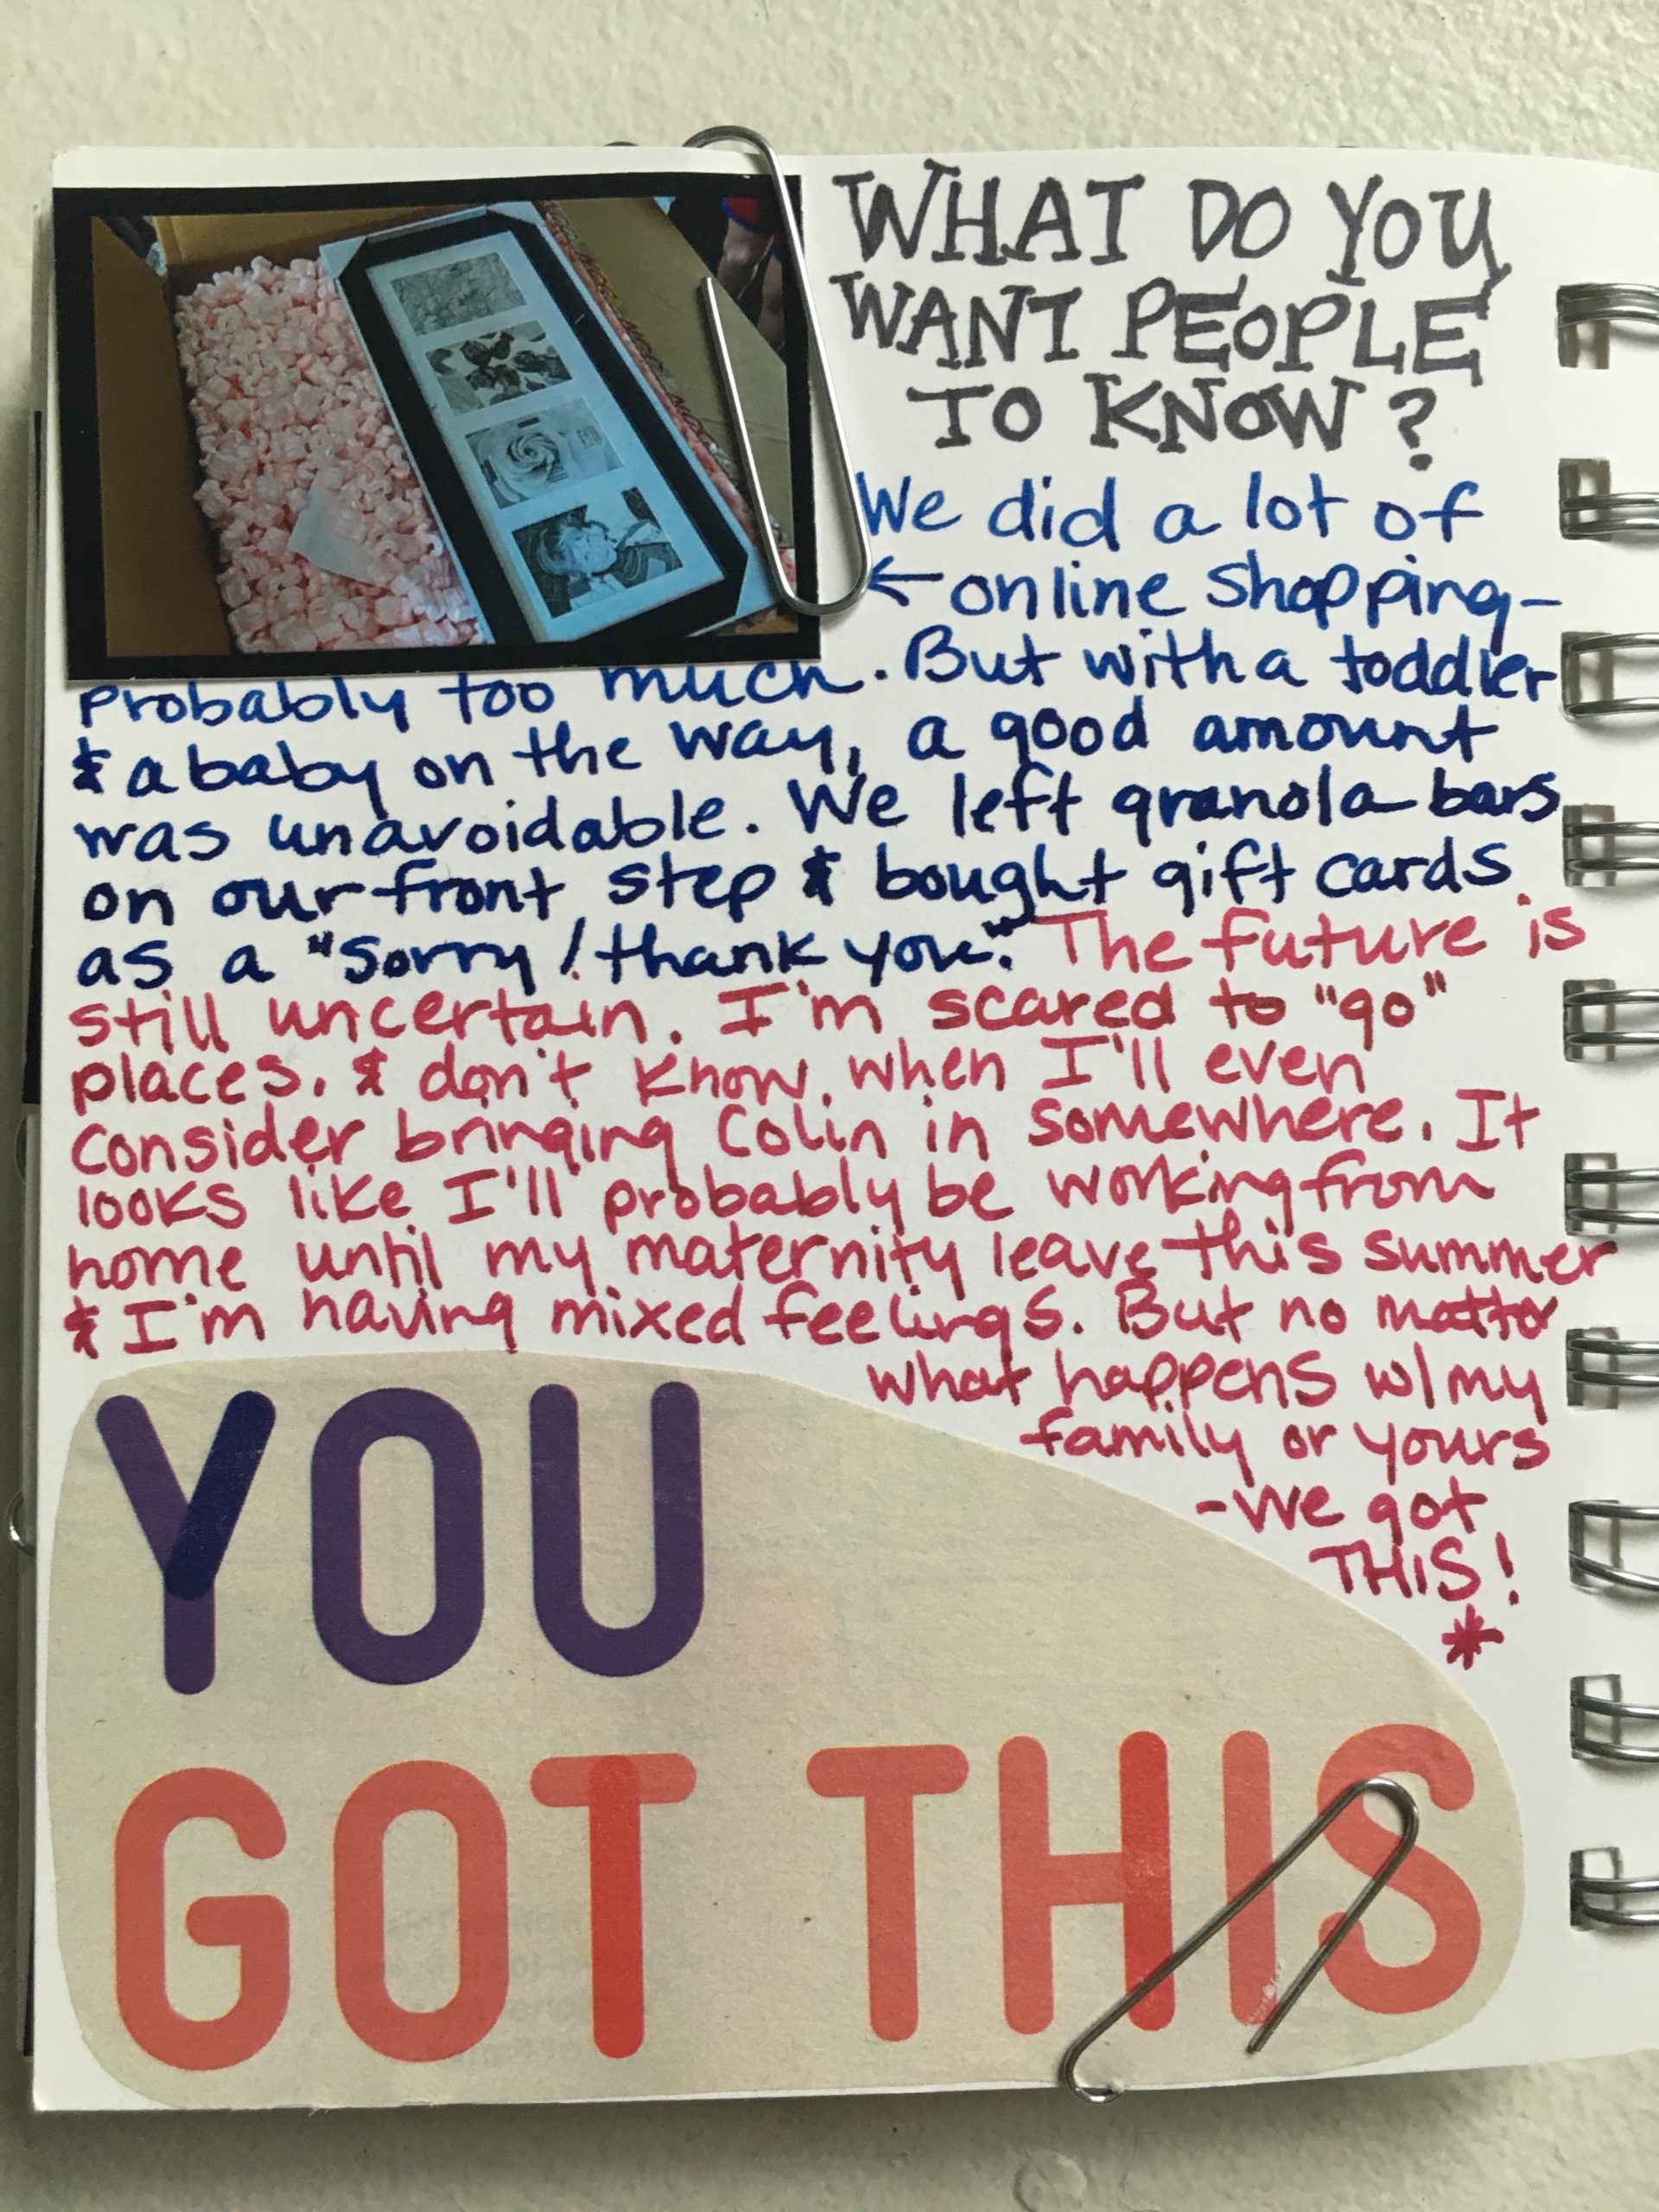 WHAT DO YOU
WANT PEOPLE
TO KNOW?
We did a lot of
←online shopping-
probably too much. But with a toddler
& a baby on the way, a good amount
was unavoidable. We left granola bars
on our front step & bought gift cards
as a "Sorry! thank you". The future is
still uncertain. I'm scared to "go"
places. & don't know when I'll even
consider bringing Colin in somewhere. It
looks like I'll probably be working from
home until my maternity leave this summer
& I'm having mixed feelings. But no matter
what happens w/ my
family or yours
-We got
THIS!
*
YOU
GOT THIS